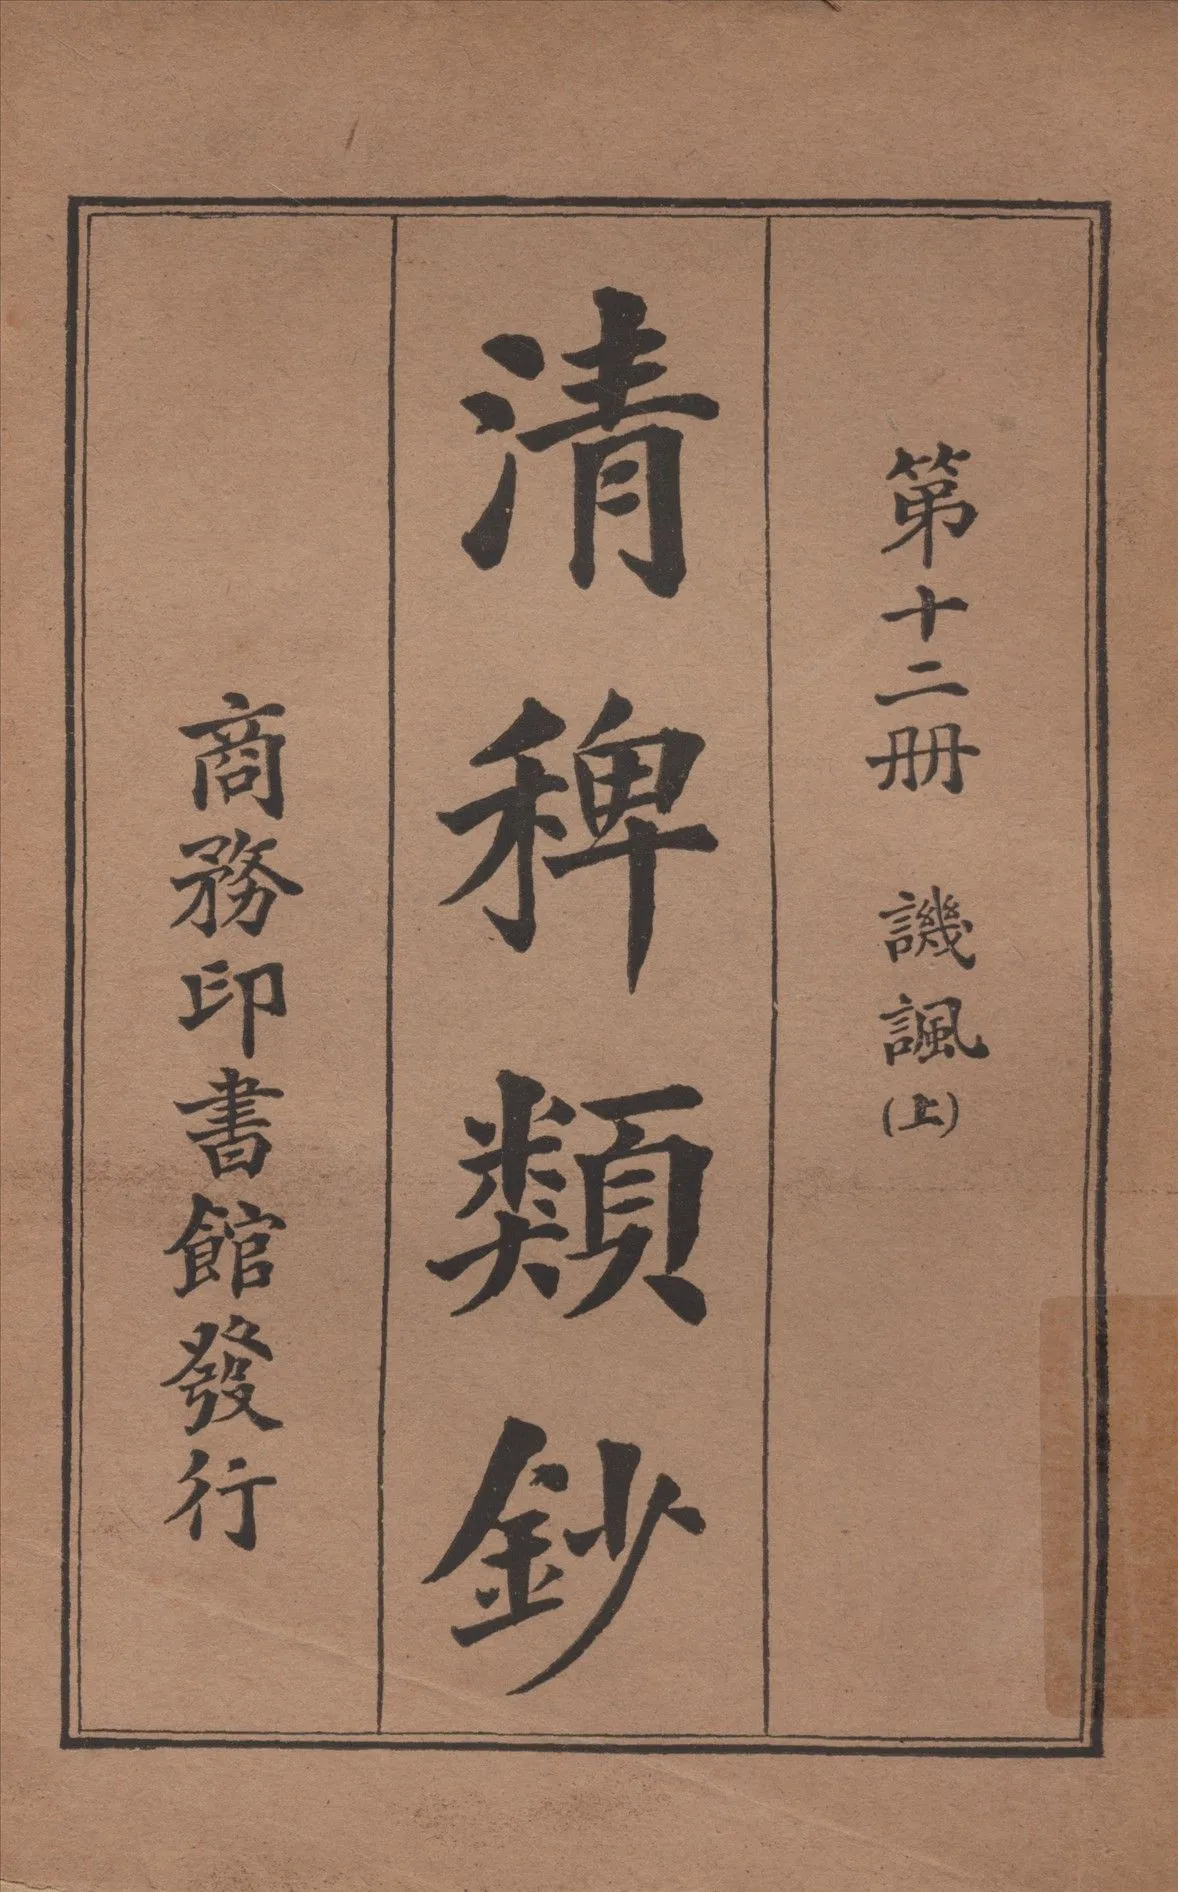 第十二册　譏諷(上)
清稗類鈔
商務印書館發行